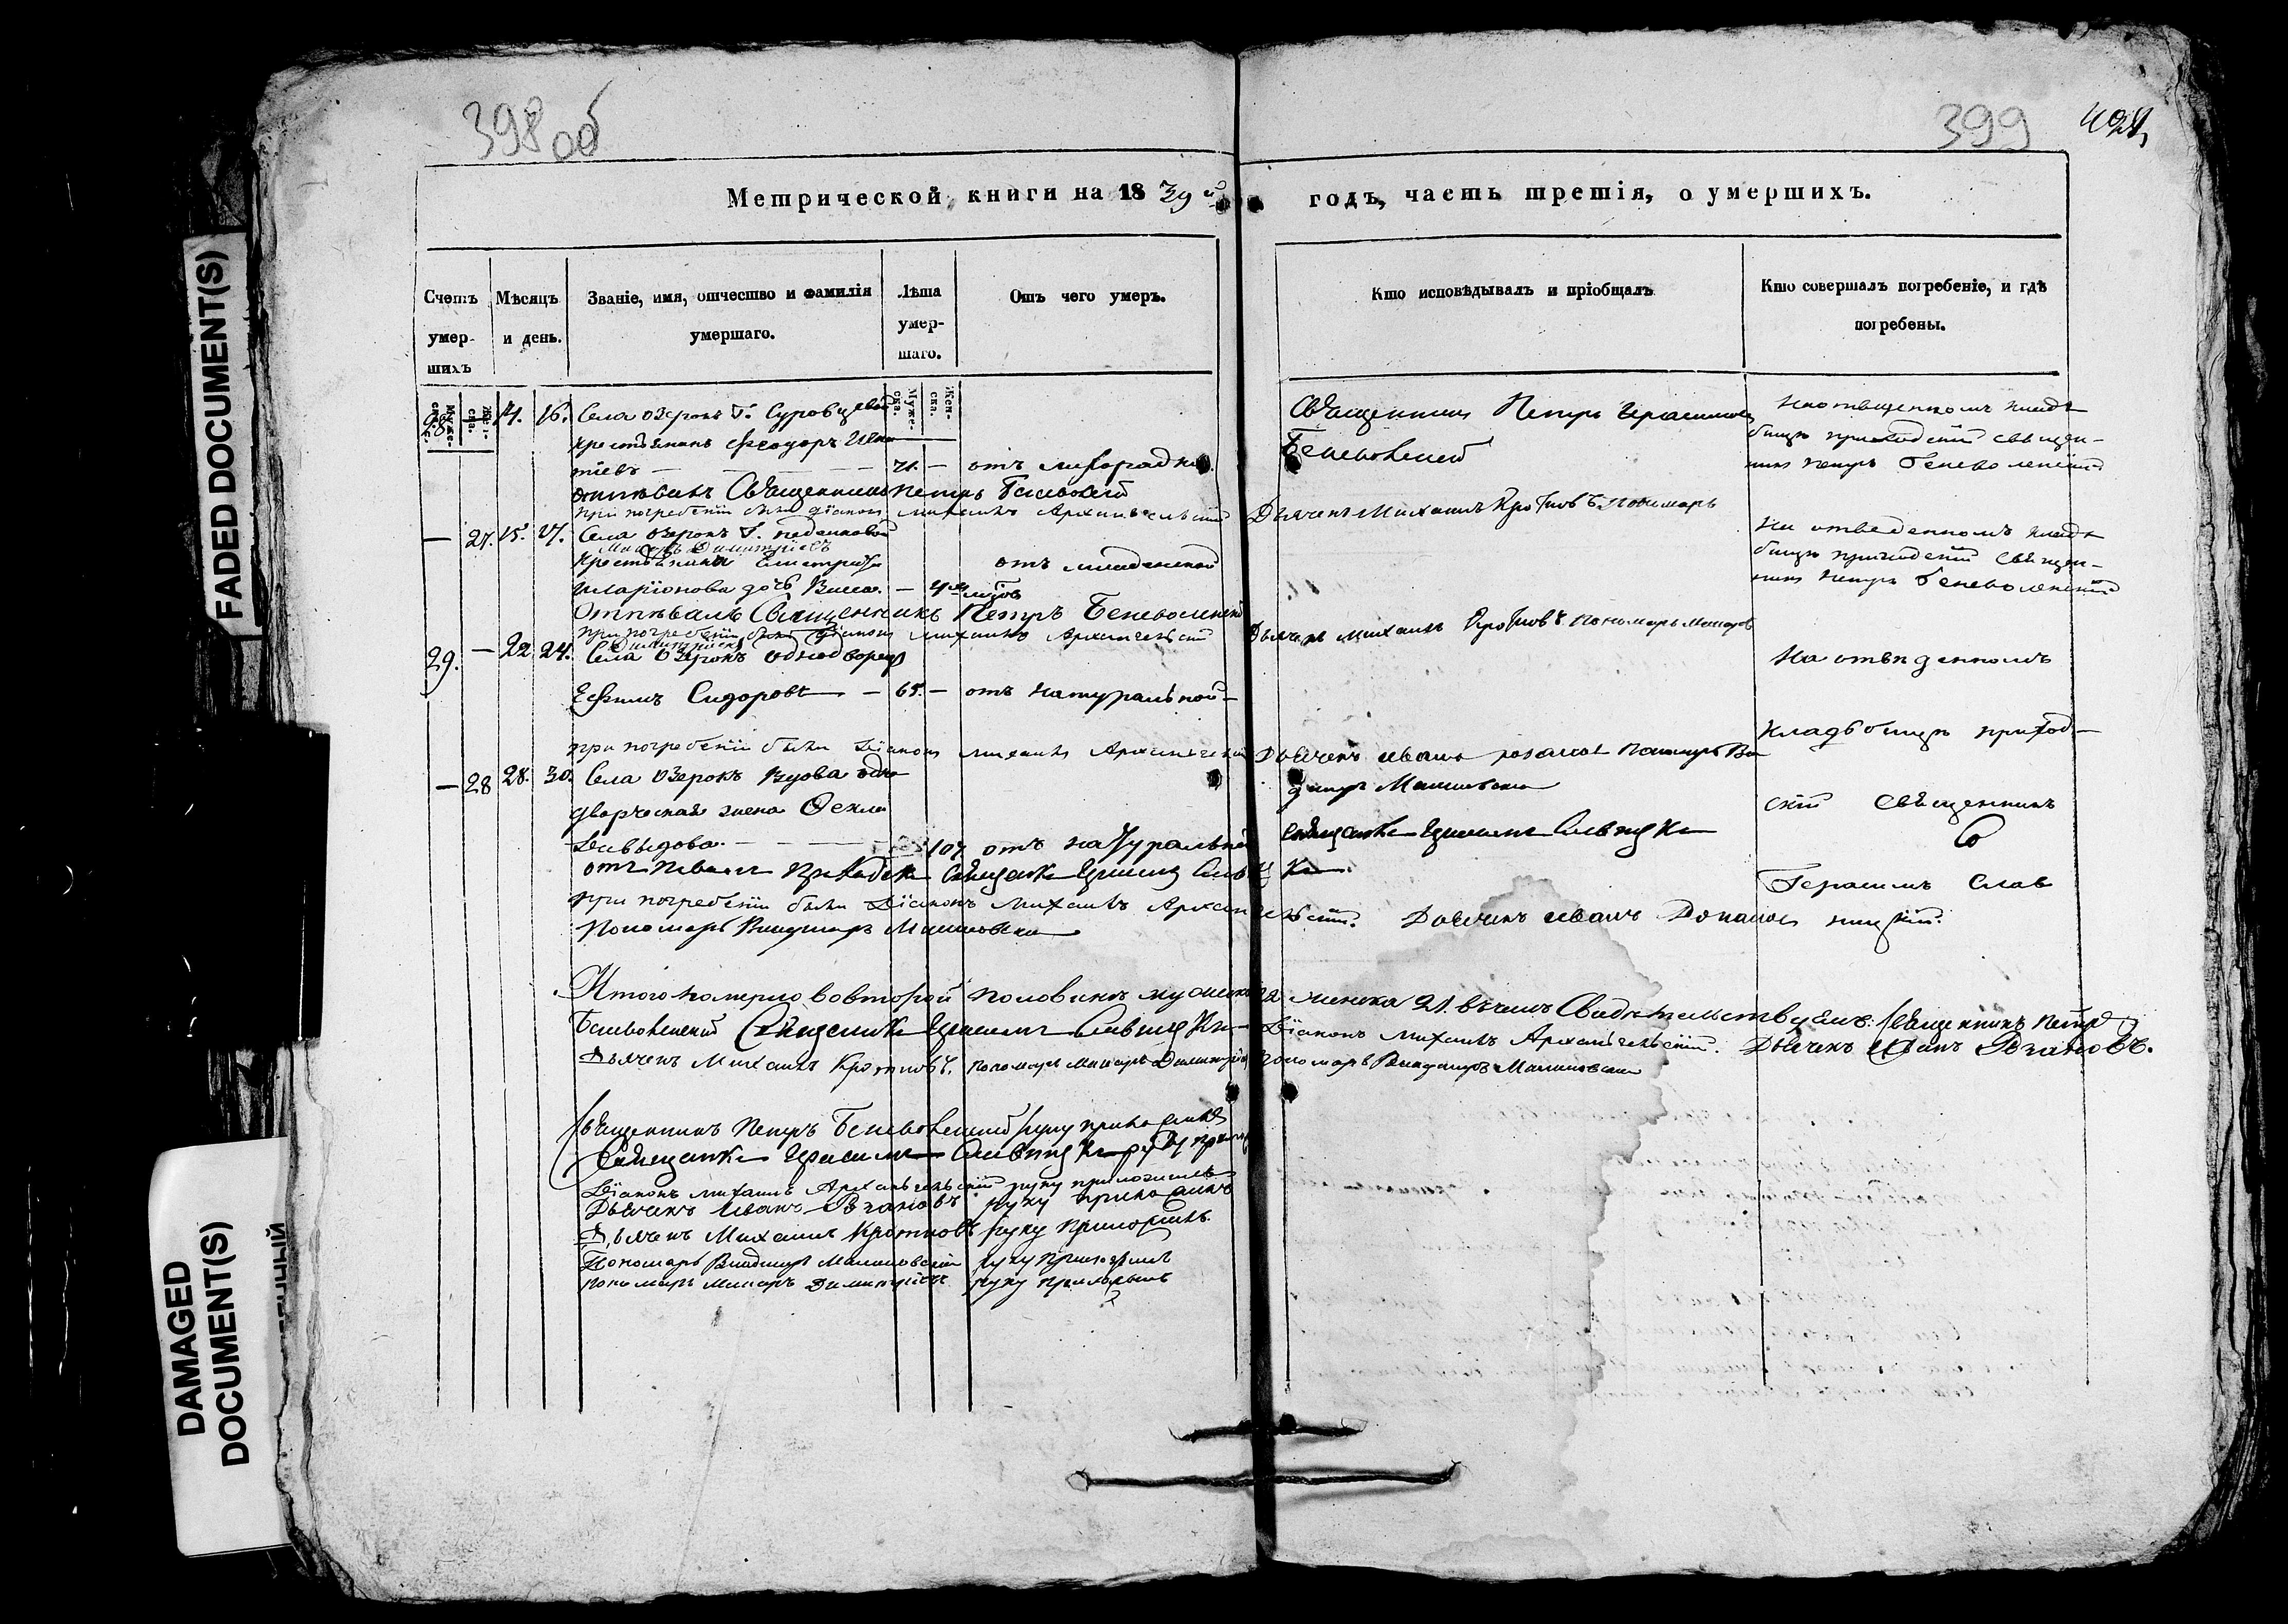 398 об
399
Метрической книги на 1839й
годъ, часть третія, о умершихъ.
Счетъ умер-шихъ
Мѣсяцъ и день.
Званіе, имя, отчество и фамилія умершаго.
Лѣта умер-шаго.
Отъ чего умеръ.
Кто исповѣдывалъ и пріобщалъ
Кто совершалъ погребеніе, и гдѣ погребены.
Муже-ска.
Жен-ска.
Муже-ска.
Жен-ска.
28 14. 16. Села Озерокъ Г. Суровцевой
крестьянинъ Феодоръ
тіевъ — 71. — отъ лихорадки.
Священникъ Петръ Герасимовъ
Беневоленскій
На отведенномъ клад-
бищѣ приходскій священ-
никъ Петръ Беневоленскій
отпѣвалъ Священникъ Петръ Беневоленскій
при погребеніи были діаконъ Михаилъ Архангельскій Дьячекъ Михаилъ Кротковъ Пономарь
Макаръ Димитріевъ
— 27. 15. 17. Села Озерокъ Г.
крестьянина
Иларіонова дочь — 4 отъ младенской
На отведенномъ клад-
бищѣ приходскій священ-
никъ Петръ Беневоленскій
Отпѣвалъ Священникъ Петръ Беневоленскій
при погребеніи были Діаконъ Михаилъ Архангельскій Дьячекъ Михаилъ Кротковъ Пономарь Макаръ
Димитріевъ
29. — 22 24. Села Озерокъ однодворецъ
Ефимъ Сидоровъ — 65. — отъ натуральной
На отведенномъ
кладбищѣ приход-
скій священникъ
Герасимъ Слав
ницкій.
при погребеніи были Діаконъ Михаилъ Архангельскій Дьячекъ Иванъ Пономарь Вла
димиръ Малиновскій
— 28 28. 30. Села Озерокъ вдова одно
дворческая жена Фекла
Давыдова. — 107 отъ натуральной
Священникъ Герасимъ Славницкій
отпѣвалъ приходскій Священникъ Герасимъ Славницкій
при погребеніи были Діаконъ Михаилъ Архангельскій. Дьячекъ Иванъ
Пономарь Владимиръ Малиновскій
Итого померло во второй половинѣ мужеска 22 женска 21. въ чемъ Свидѣтельствуемъ: Священникъ Петръ
Беневоленскій Священникъ Герасимъ Славницкій Діаконъ Михаилъ Архангельскій. Дьячекъ Иванъ
Дьячекъ Михаилъ Кротковъ. пономарь Макаръ Димитріевъ пономарь Владимиръ Малиновскій
Священникъ Петръ Беневоленскій руку приложилъ
Священникъ Герасимъ Славницкій руку приложилъ
Діаконъ Михаилъ Архангельскій руку приложилъ
Дьячекъ Иванъ руку приложилъ
Дьячекъ Михаилъ Кротковъ руку приложилъ.
Пономарь Владимиръ Малиновскій руку приложилъ
пономарь Макаръ Димитріевъ руку приложилъ
FADED DOCUMENT(S)
DAMAGED
DOCUMENT(S)